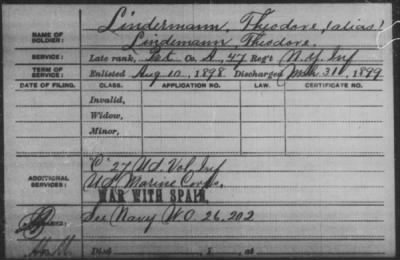 Lindermann, Theodore, (alias)
NAME OF SOLDIER: Lindemann, Theodore.
SERVICE: Late rank, Pvt Co. A, 47 Reg't N.Y. Inf
TERM OF SERVICE: Enlisted Aug 10, 1898 Discharged Mch 31, 1899
DATE OF FILING. CLASS. APPLICATION NO. LAW. CERTIFICATE NO.
Invalid,
Widow,
Minor,
ADDITIONAL SERVICES: "C" 27 U.S. Vol Inf
U.S. Marine Corps.
WAR WITH SPAIN.
See Navy W.O. 26,202
Died , 1 , at